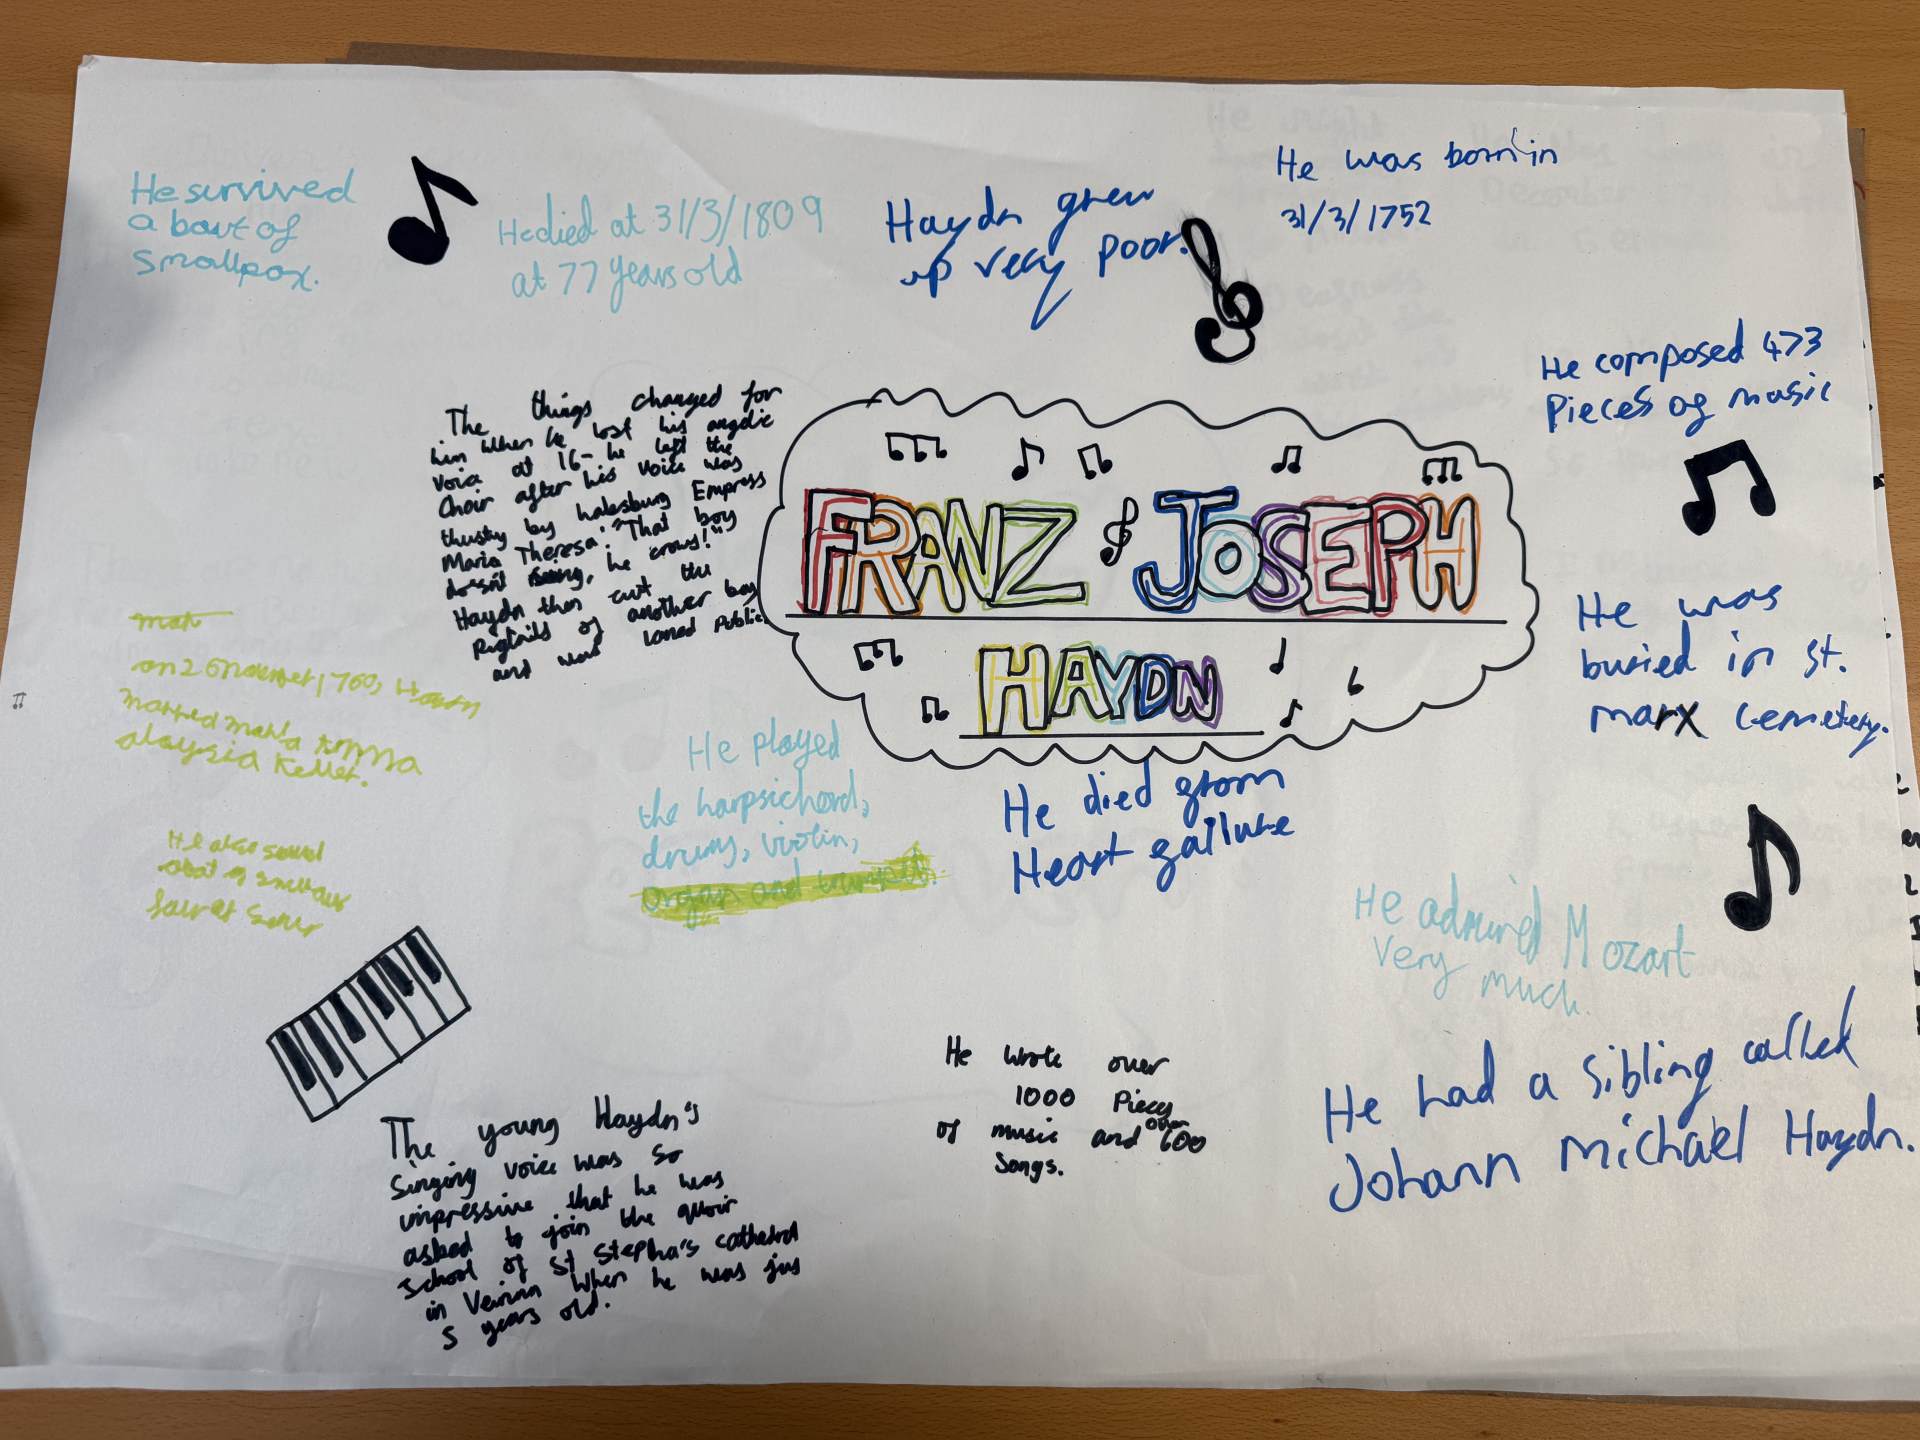 He survived
a bout of
Smallpox.
He died at 31/3/1809
at 77 years old
Haydn grew
up very poor.
He was born in
31/3/1752
He composed 473
Pieces of music
The things changed for
him when he lost his angelic
voice at 16- he left the
Choir after his voice was
by Empress
Maria Theresa: "That boy
doesn't sing, he crows!"
Haydn then cut the
Pigtails of another boy
and was Public
FRANZ JOSEPH
HAYDN
He was
buried in st.
marx cemetery.
on 26 November 1760, Haydn
married maria Anna
aloysia Keller.
He played
the harpsichord,
drums, violin,
organ and trumpet.
He died from
Heart failure
He also
He admired Mozart
Very much.
He had a sibling called
Johann Michael Haydn.
He wrote over
1000 Pieces
of music and over 600
Songs.
The young Haydn's
Singing voice was so
impressive that he was
asked to join the quoir
School of St Stepha's cathedral
in when he was jus
5 years old.